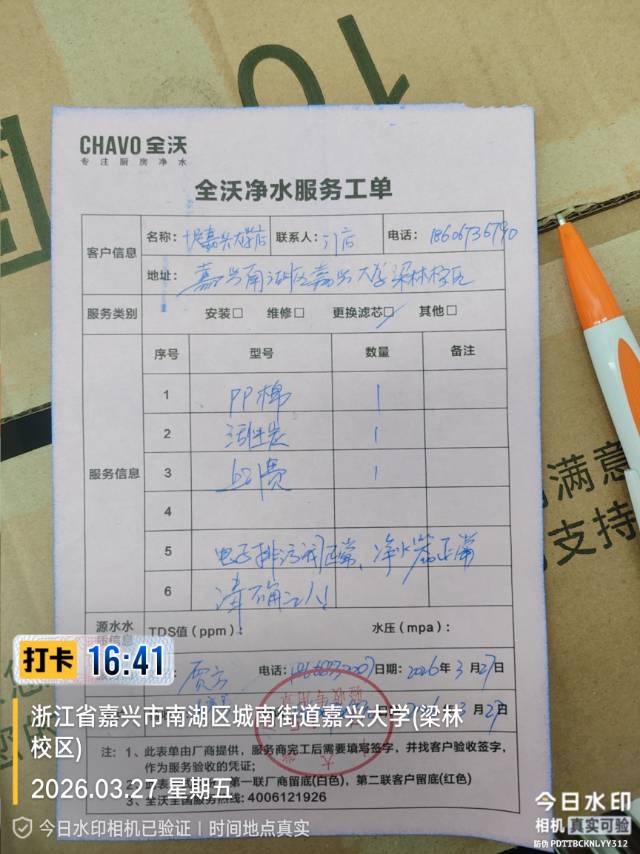 CHAVO 全沃
专注厨房净水
全沃净水服务工单
客户信息
名称: 嘉兴大学店 联系人: 门店 电话:
地址: 嘉兴南湖区嘉兴大学梁林校区
服务类别 安装□ 维修□ 更换滤芯□ 其他□
服务信息
序号 型号 数量 备注
1 PP棉 1
2 活性炭 1
3 上门费 1
4
5 电子排污阀正常、净水器正常
6 请确认!
源水水
TDS值(ppm): 水压(mpa):
电话: 日期: 2026年3月27日
月27
注: 1、此表单由厂商提供,服务商完工后需要填写签字,并找客户验收签字,
作为服务验收的凭证;
第一联厂商留底(白色),第二联客户留底(红色)
3、全沃全国服务热线: 4006121926
打卡 16:41
浙江省嘉兴市南湖区城南街道嘉兴大学(梁林
校区)
2026.03.27 星期五
今日水印相机已验证 | 时间地点真实
今日水印
相机 真实可验
防伪 PDTTBCKNLYY312
满意
支持
10